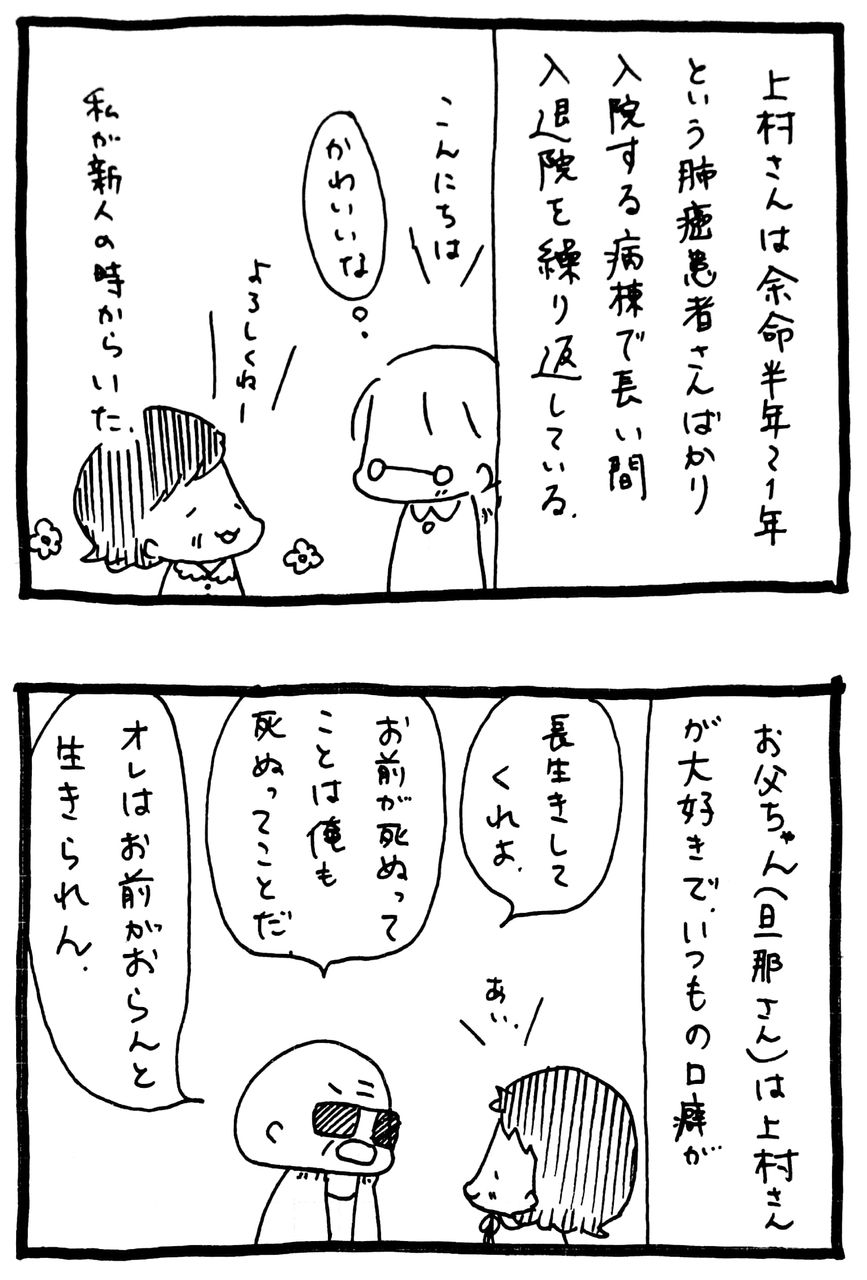 上村さんは余命半年〜1年
という肺癌患者さんばかり
入院する病棟で長い間
入退院を繰り返している.
こんにちは
かわいいな
よろしくねー
私が新人の時からいた.
お父ちゃん(旦那さん)は上村さん
が大好きで.いつもの口癖が
長生きして
くれよ.
お前が死ぬって
ことは俺も
死ぬってことだ.
オレはお前がおらんと
生きられん.
あい.